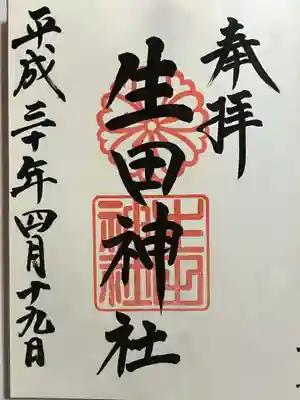 奉拝
生田神社
平成三十年四月十九日